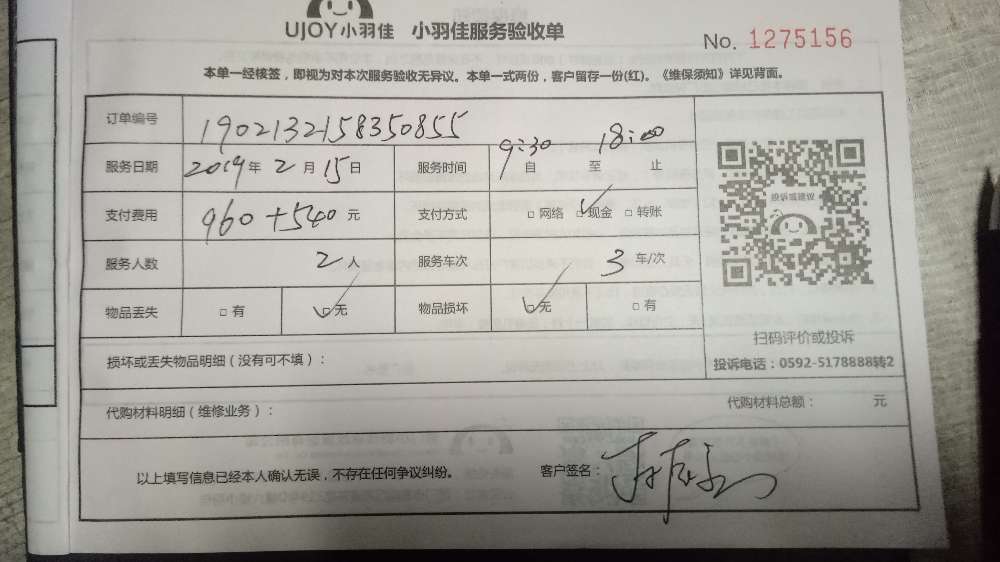 UJOY小羽佳 小羽佳服务验收单
No. 1275156
本单一经核签，即视为对本次服务验收无异议。本单一式两份，客户留存一份(红)。《维保须知》详见背面。
订单编号 1902132158350855
服务日期 2019年 2月 15日 服务时间 9:30 自 至 18:00 止
支付费用 960+540 元 支付方式 □网络 □现金 □转账
投诉或建议
服务人数 2人 服务车次 3 车/次
物品丢失 □有 □无 物品损坏 □无 □有
扫码评价或投诉
损坏或丢失物品明细（没有可不填）：
投诉电话：0592-5178888转2
代购材料明细（维修业务）： 代购材料总额： 元
以上填写信息已经本人确认无误，不存在任何争议纠纷。 客户签名：